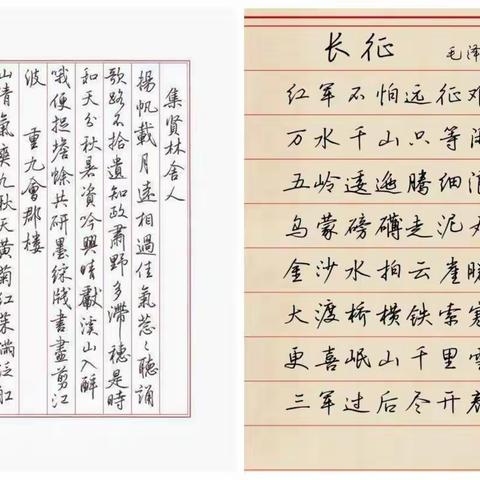 集賢林舍人
揚帆載月遠相過佳氣葱々聽誦
歌路不拾遺知政肅野多滯穗是時
和天分秋暑資吟興晴獻溪山入醉
哦便捉蟾蜍共研墨綵牋書盡剪江
波 重九會郡樓
山清氣爽九秋天黃菊紅茱滿泛舡
长征 毛泽
红军不怕远征难
万水千山只等闲
五岭逶迤腾细浪
乌蒙磅礴走泥丸
金沙水拍云崖暖
大渡桥横铁索寒
更喜岷山千里雪
三军过后尽开颜